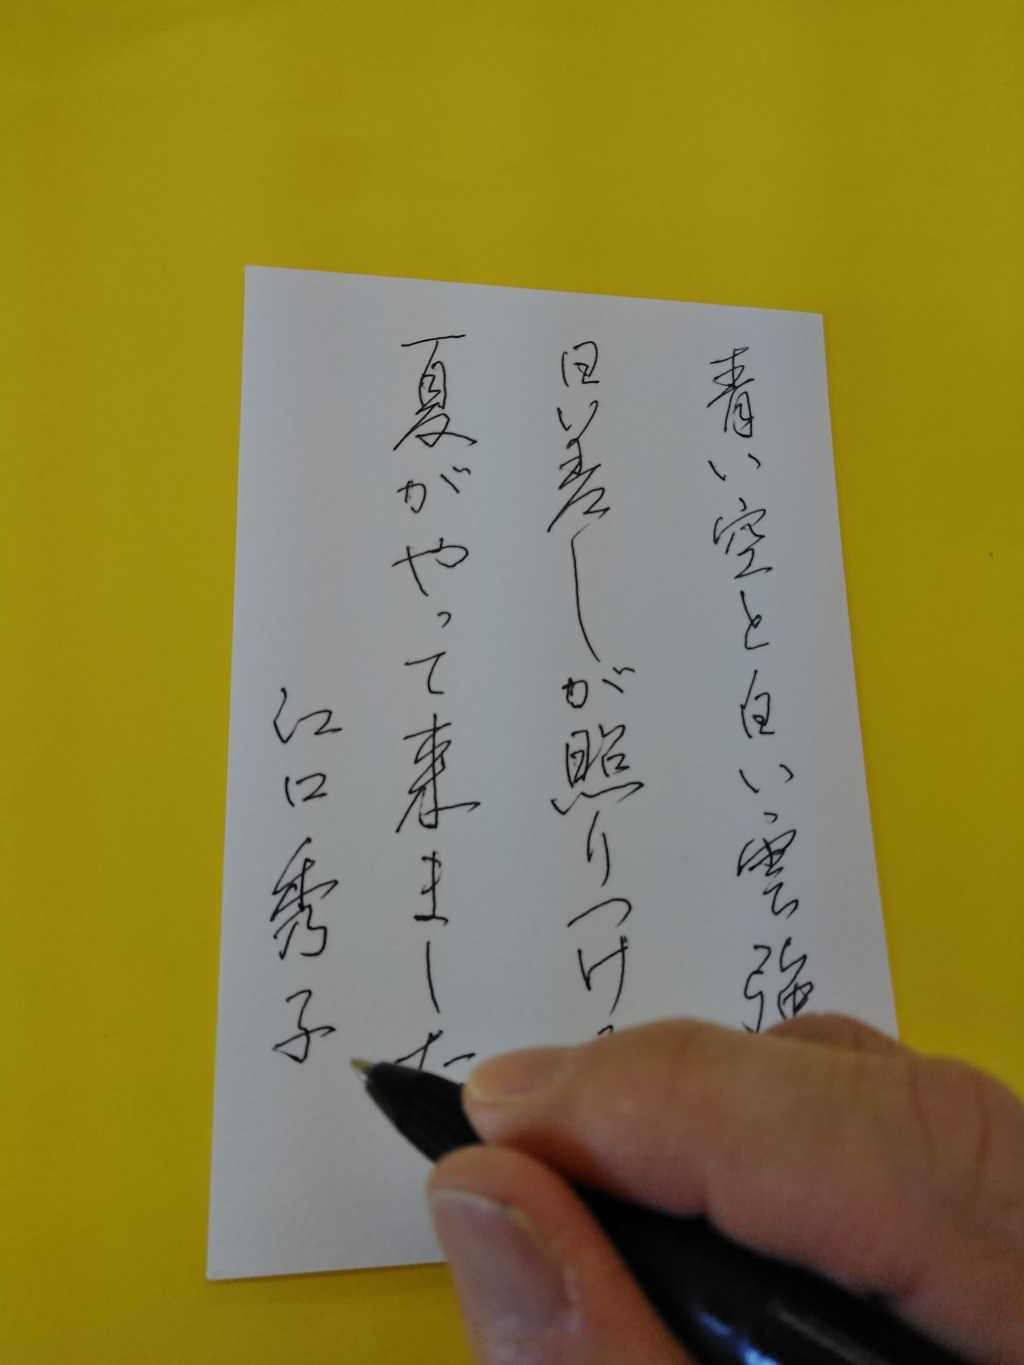 青い空と白い雲強
日い差しが照りつけ
夏がやって来ました
江口秀子